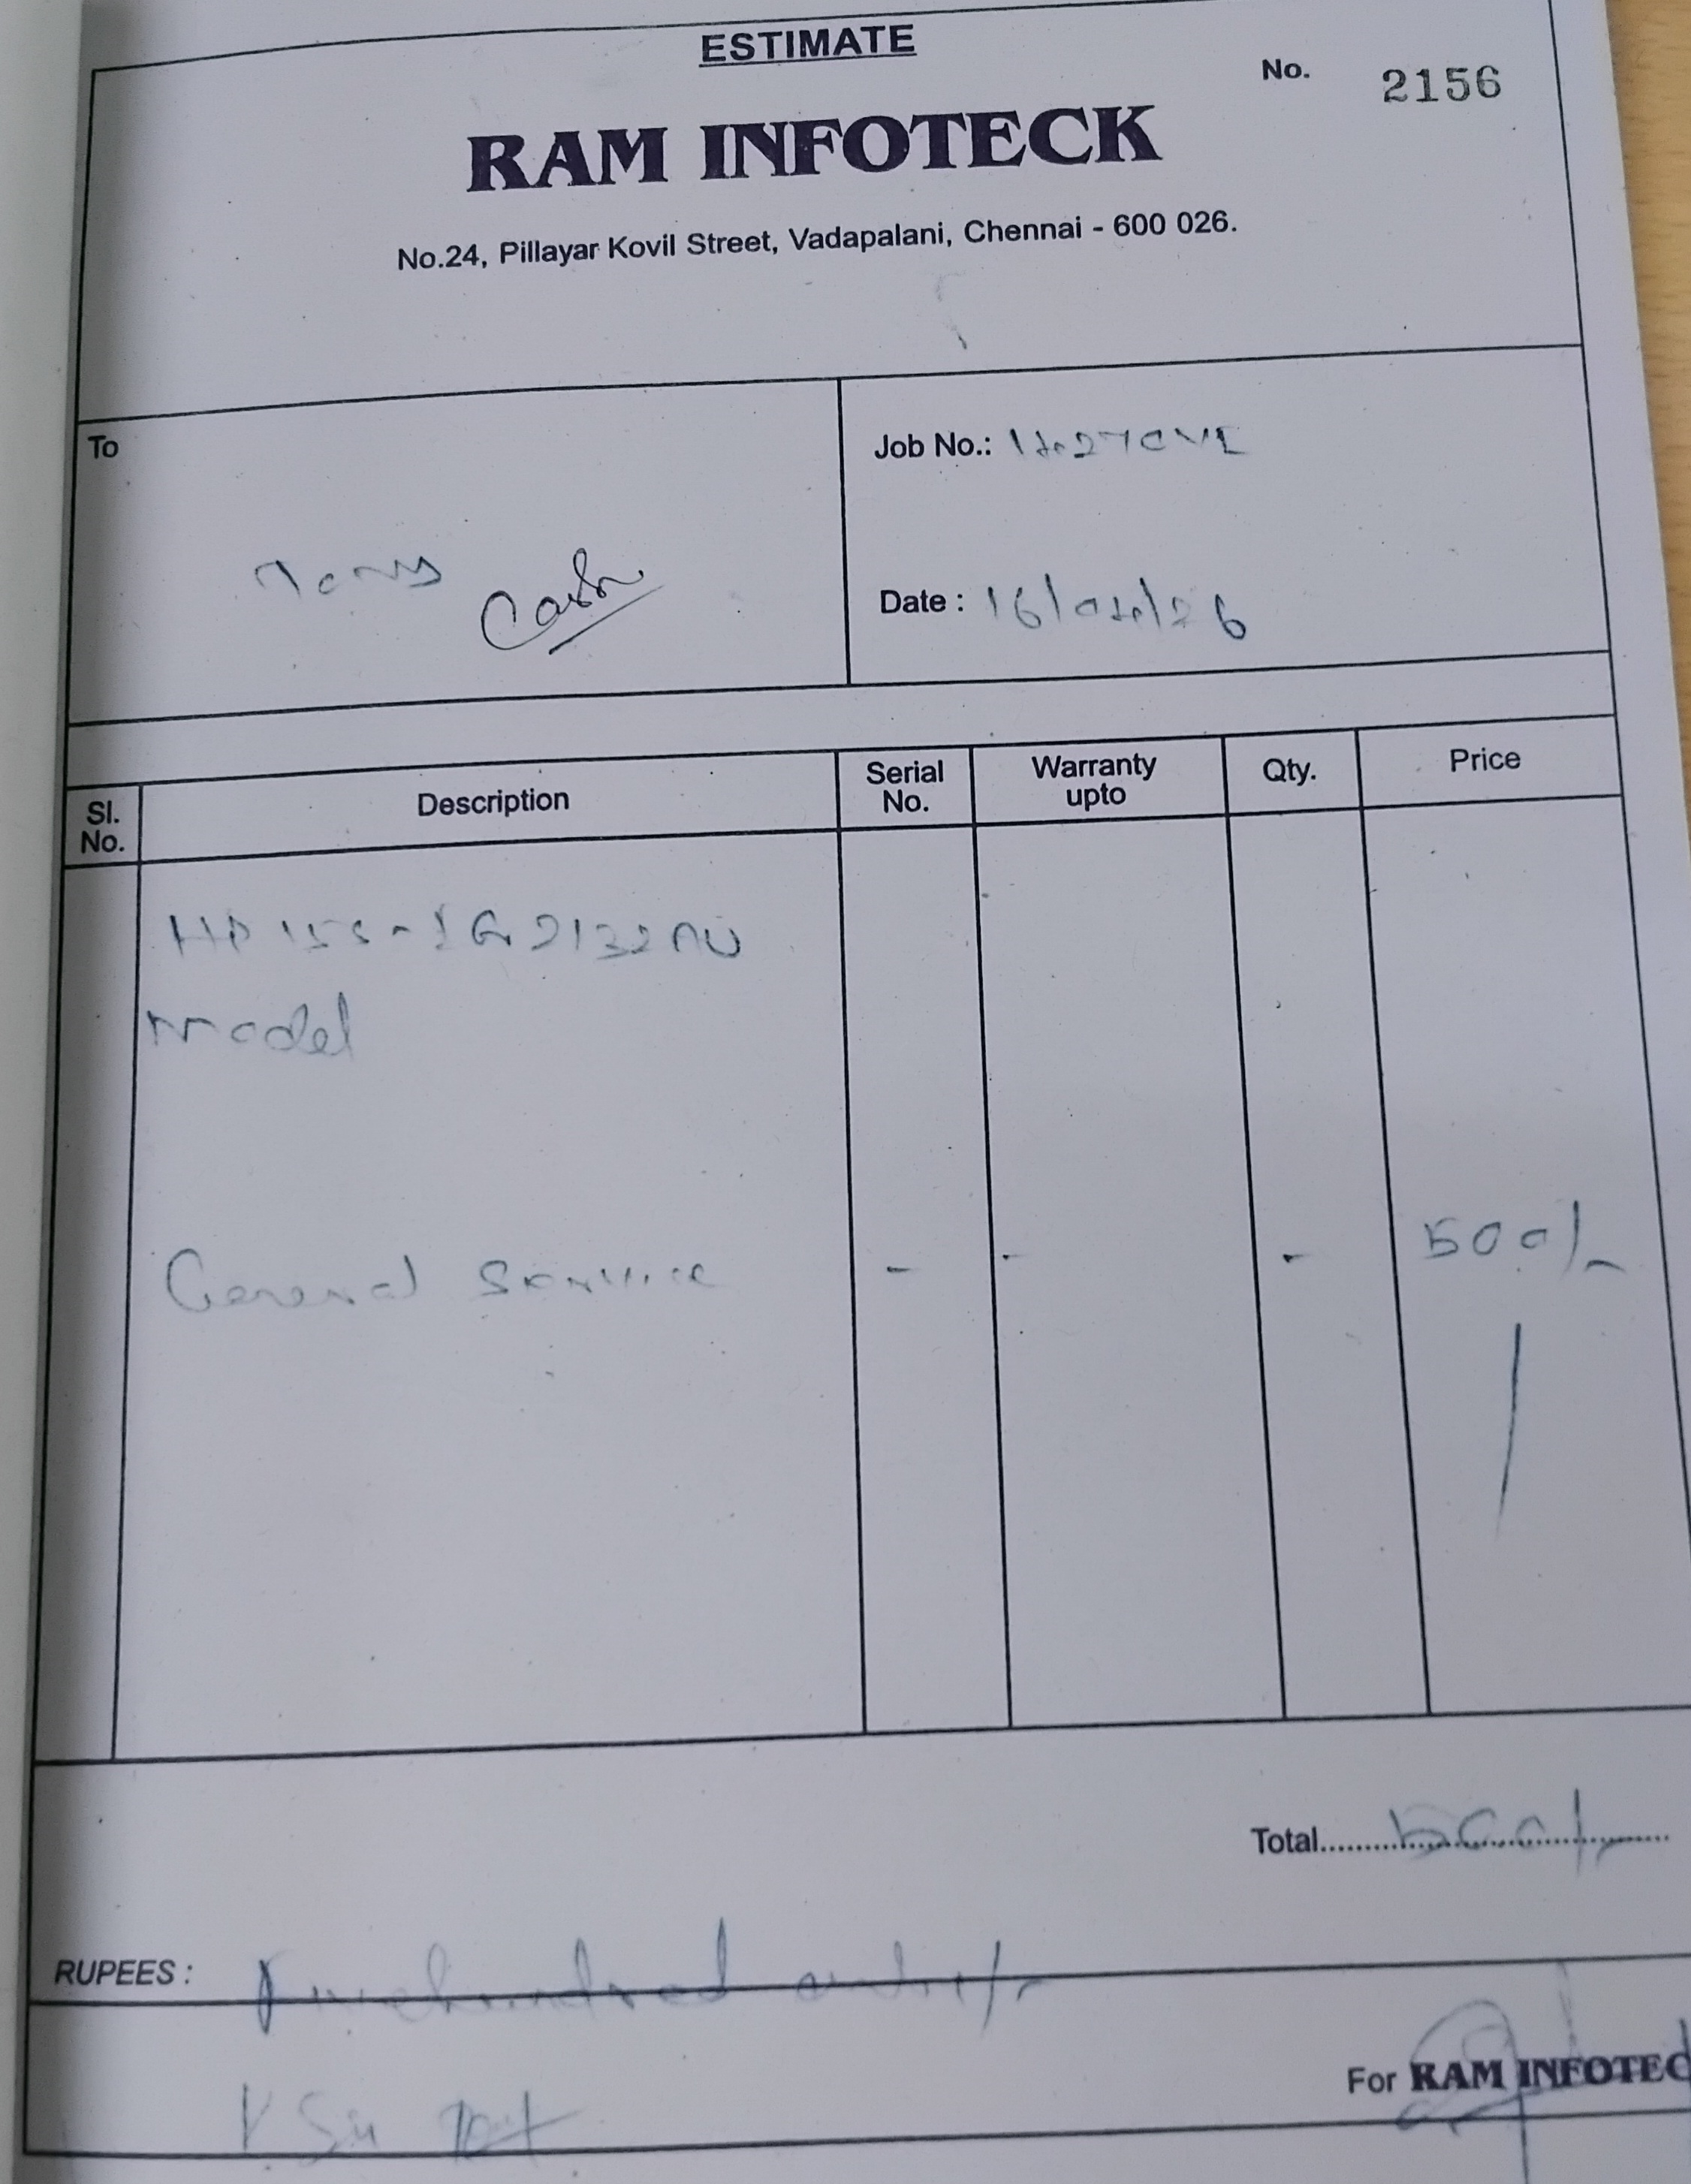 ESTIMATE
No. 2156
RAM INFOTECK
No.24, Pillayar Kovil Street, Vadapalani, Chennai - 600 026.
To
Job No.:
Cash
Date : 16/04/26
Sl. No. Description Serial No. Warranty upto Qty. Price
HP 15s-
model
General Service - - - 500/-
Total 500/-
RUPEES : Five hundred only/-
For RAM INFOTEC